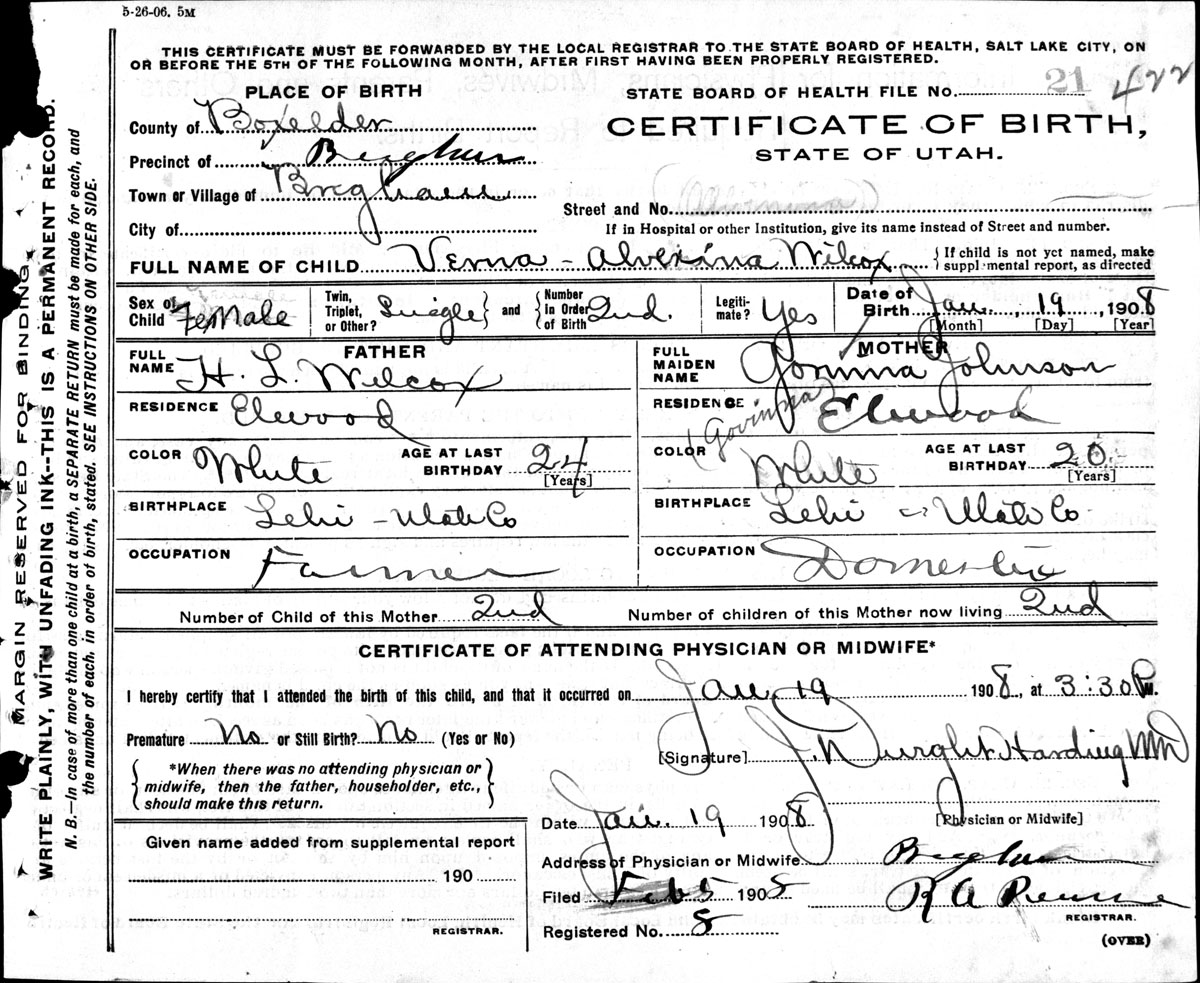 5-26-06. 5M
THIS CERTIFICATE MUST BE FORWARDED BY THE LOCAL REGISTRAR TO THE STATE BOARD OF HEALTH, SALT LAKE CITY, ON
OR BEFORE THE 5TH OF THE FOLLOWING MONTH, AFTER FIRST HAVING BEEN PROPERLY REGISTERED.
PLACE OF BIRTH
STATE BOARD OF HEALTH FILE No. 21 422
County of Boxelder
CERTIFICATE OF BIRTH,
Precinct of Brigham
STATE OF UTAH.
Town or Village of Brigham
Street and No.
City of
If in Hospital or other Institution, give its name instead of Street and number.
FULL NAME OF CHILD Verna - Alverina Wilcox { If child is not yet named, make supplmental report, as directed
Sex of Child Female
Twin, Triplet, or Other? Single } and { Number in Order of Birth 2nd.
Legiti-mate? Yes
Date of Birth Jan. 19, 1908
[Month] [Day] [Year]
FATHER
FULL NAME H. L. Wilcox
MOTHER
FULL MAIDEN NAME Johnson
RESIDENCE Elwood
RESIDENCE Elwood
(Govinna)
COLOR White AGE AT LAST BIRTHDAY 24 [Years]
COLOR White AGE AT LAST BIRTHDAY 20 [Years]
BIRTHPLACE Lehi - Utah Co
BIRTHPLACE Lehi - Utah Co
OCCUPATION Farmer
OCCUPATION Domestic
Number of Child of this Mother 2nd
Number of children of this Mother now living 2nd
CERTIFICATE OF ATTENDING PHYSICIAN OR MIDWIFE*
I hereby certify that I attended the birth of this child, and that it occurred on Jan 19 1908, at 3:30 P.M.
Premature No or Still Birth? No (Yes or No)
[Signature] J. Dwight Harding MD
{ *When there was no attending physician or midwife, then the father, householder, etc., should make this return. }
[Physician or Midwife]
Date Jan. 19 1908
Given name added from supplemental report
190
REGISTRAR.
Address of Physician or Midwife Brigham
Filed Feb 5 1908
R A
REGISTRAR.
Registered No. 8
(OVER)
MARGIN RESERVED FOR BINDING
WRITE PLAINLY, WITH UNFADING INK--THIS IS A PERMANENT RECORD.
N. B.—In case of more than one child at a birth, a SEPARATE RETURN must be made for each, and
the number of each, in order of birth, stated. SEE INSTRUCTIONS ON OTHER SIDE.